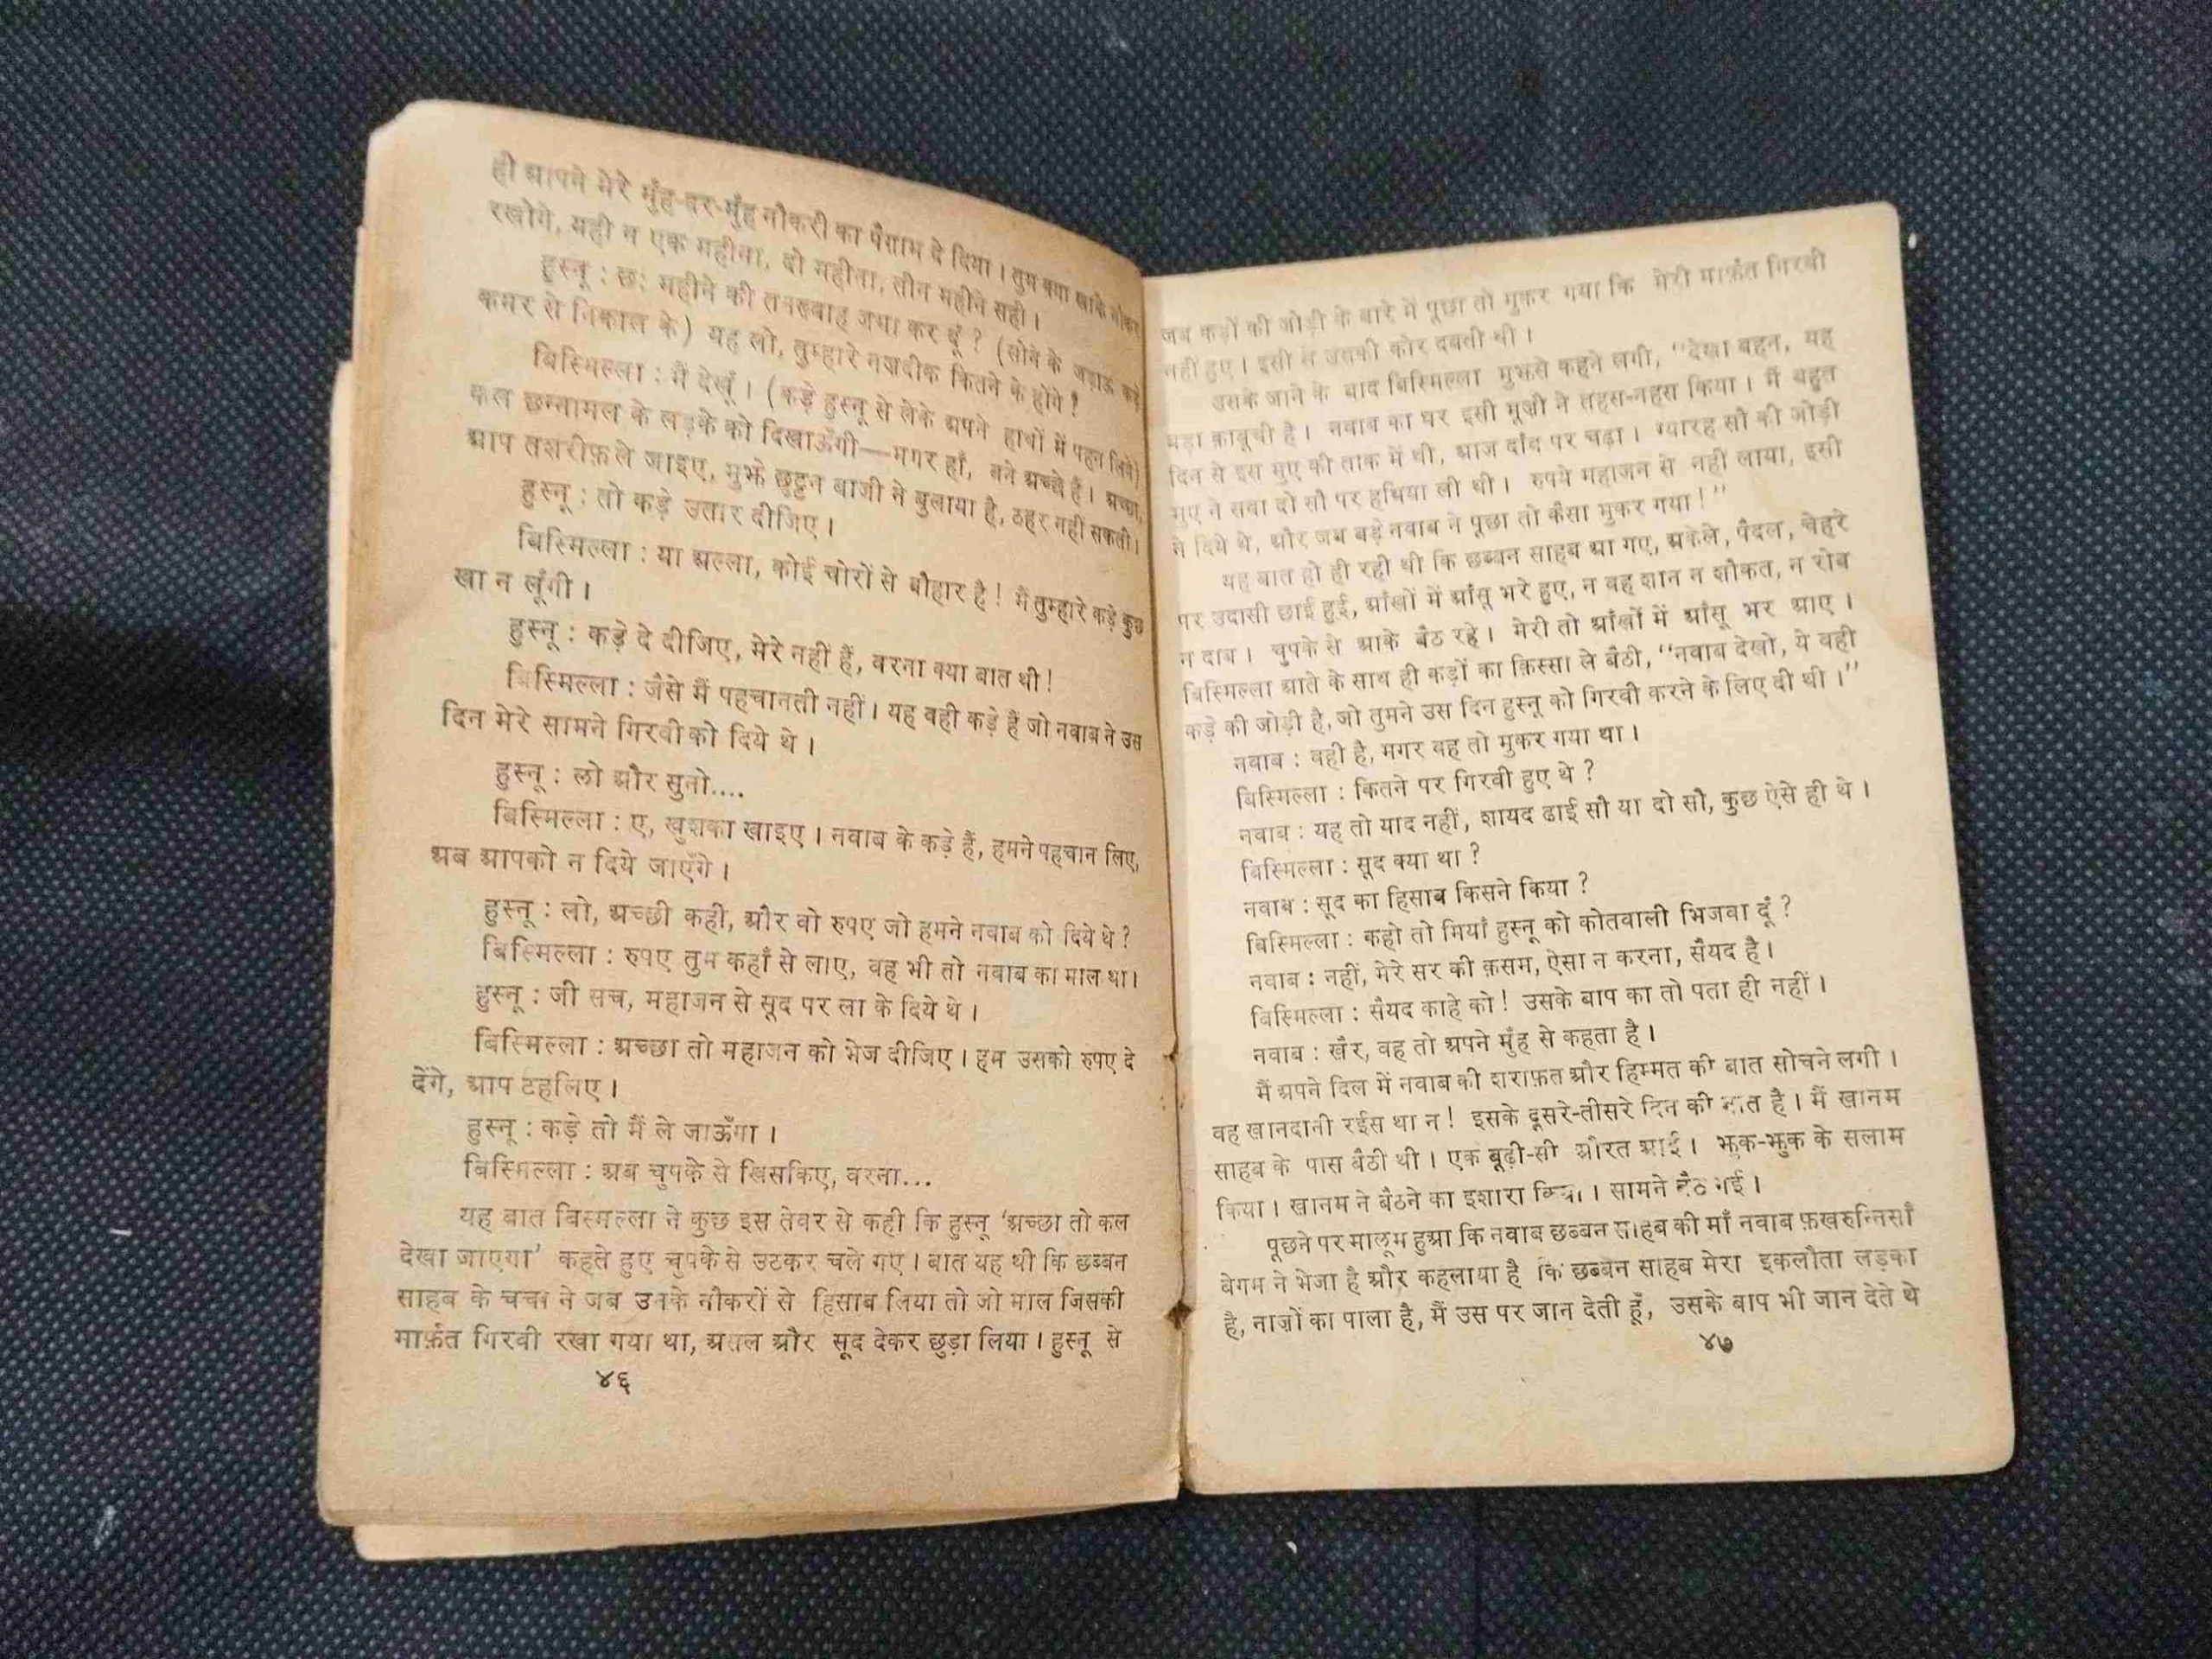 ही आपने मेरे मुँह-दर-मुँह नौकरी का पैग़ाम दे दिया । तुम क्या खाके नौकर
रखोगे, यही न एक महीना, दो महीना, तीन महीने सही ।
हुस्नू : छः महीने की तनख्वाह जमा कर दूँ ? (सोने के जड़ाऊ कड़े
कमर से निकाल के) यह लो, तुम्हारे नज़दीक कितने के होंगे ?
बिस्मिल्ला : मैं देखूँ । (कड़े हुस्नू से लेके अपने हाथों में पहन लिये)
कल छन्नामल के लड़के को दिखाऊँगी—मगर हाँ, बने अच्छे हैं । अच्छा,
आप तशरीफ़ ले जाइए, मुझे छुट्टन बाजी ने बुलाया है, ठहर नहीं सकती ।
हुस्नू : तो कड़े उतार दीजिए ।
बिस्मिल्ला : या अल्ला, कोई चोरों से बौहार है ! मैं तुम्हारे कड़े कुछ
खा न लूँगी ।
हुस्नू : कड़े दे दीजिए, मेरे नहीं हैं, वरना क्या बात थी !
बिस्मिल्ला : जैसे मैं पहचानती नहीं । यह वही कड़े हैं जो नवाब ने उस
दिन मेरे सामने गिरवी को दिये थे ।
हुस्नू : लो और सुनो....
बिस्मिल्ला : ए, खुशका खाइए । नवाब के कड़े हैं, हमने पहचान लिए,
अब आपको न दिये जाएँगे ।
हुस्नू : लो, अच्छी कही, और वो रुपए जो हमने नवाब को दिये थे ?
बिस्मिल्ला : रुपए तुम कहाँ से लाए, वह भी तो नवाब का माल था ।
हुस्नू : जी सच, महाजन से सूद पर ला के दिये थे ।
बिस्मिल्ला : अच्छा तो महाजन को भेज दीजिए । हम उसको रुपए दे
देंगे, आप टहलिए ।
हुस्नू : कड़े तो मैं ले जाऊँगा ।
बिस्मिल्ला : अब चुपके से खिसकिए, वरना...
यह बात बिस्मिल्ला ने कुछ इस तेवर से कही कि हुस्नू ‘अच्छा तो कल
देखा जाएगा’ कहते हुए चुपके से उटकर चले गए । बात यह थी कि छब्बन
साहब के चचा ने जब उनके नौकरों से हिसाब लिया तो जो माल जिसकी
मार्फ़त गिरवी रखा गया था, असल और सूद देकर छुड़ा लिया । हुस्नू से
४६
जब कड़ों की जोड़ी के बारे में पूछा तो मुकर गया कि मेरी मार्फ़त गिरवी
नहीं हुए । इसी से उसकी कोर दबती थी ।
उसके जाने के बाद बिस्मिल्ला मुझसे कहने लगी, “देखा बहन, यह
बड़ा क़ाबूची है । नवाब का घर इसी मूज़ी ने तहस-नहस किया । मैं बहुत
दिन से इस मुए की ताक में थी, आज दाँव पर चढ़ा । ग्यारह सौ की जोड़ी
मुए ने सवा दो सौ पर हथिया ली थी । रुपये महाजन से नहीं लाया, इसी
ने दिये थे, और जब बड़े नवाब ने पूछा तो कैसा मुकर गया !”
यह बात हो ही रही थी कि छब्बन साहब आ गए, अकेले, पैदल, चेहरे
पर उदासी छाई हुई, आँखों में आँसू भरे हुए, न वह शान न शौकत, न रोब
न दाब । चुपके से आके बैठ रहे । मेरी तो आँखों में आँसू भर आए ।
बिस्मिल्ला आते के साथ ही कड़ों का क़िस्सा ले बैठी, “नवाब देखो, ये वही
कड़े की जोड़ी है, जो तुमने उस दिन हुस्नू को गिरवी करने के लिए दी थी ।”
नवाब : वही है, मगर वह तो मुकर गया था ।
बिस्मिल्ला : कितने पर गिरवी हुए थे ?
नवाब : यह तो याद नहीं, शायद ढाई सौ या दो सौ, कुछ ऐसे ही थे ।
बिस्मिल्ला : सूद क्या था ?
नवाब : सूद का हिसाब किसने किया ?
बिस्मिल्ला : कहो तो मियाँ हुस्नू को कोतवाली भिजवा दूँ ?
नवाब : नहीं, मेरे सर की क़सम, ऐसा न करना, सैयद है ।
बिस्मिल्ला : सैयद काहे को ! उसके बाप का तो पता ही नहीं ।
नवाब : खैर, वह तो अपने मुँह से कहता है ।
मैं अपने दिल में नवाब की शराफ़त और हिम्मत की बात सोचने लगी ।
वह खानदानी रईस था न ! इसके दूसरे-तीसरे दिन की बात है । मैं खानम
साहब के पास बैठी थी । एक बूढ़ी-सी औरत आई । झुक-झुक के सलाम
किया । खानम ने बैठने का इशारा किया । सामने बैठ गई ।
पूछने पर मालूम हुआ कि नवाब छब्बन साहब की माँ नवाब फ़खरुन्निसाँ
बेगम ने भेजा है और कहलाया है कि छब्बन साहब मेरा इकलौता लड़का
है, नाज़ों का पाला है, मैं उस पर जान देती हूँ, उसके बाप भी जान देते थे
४७